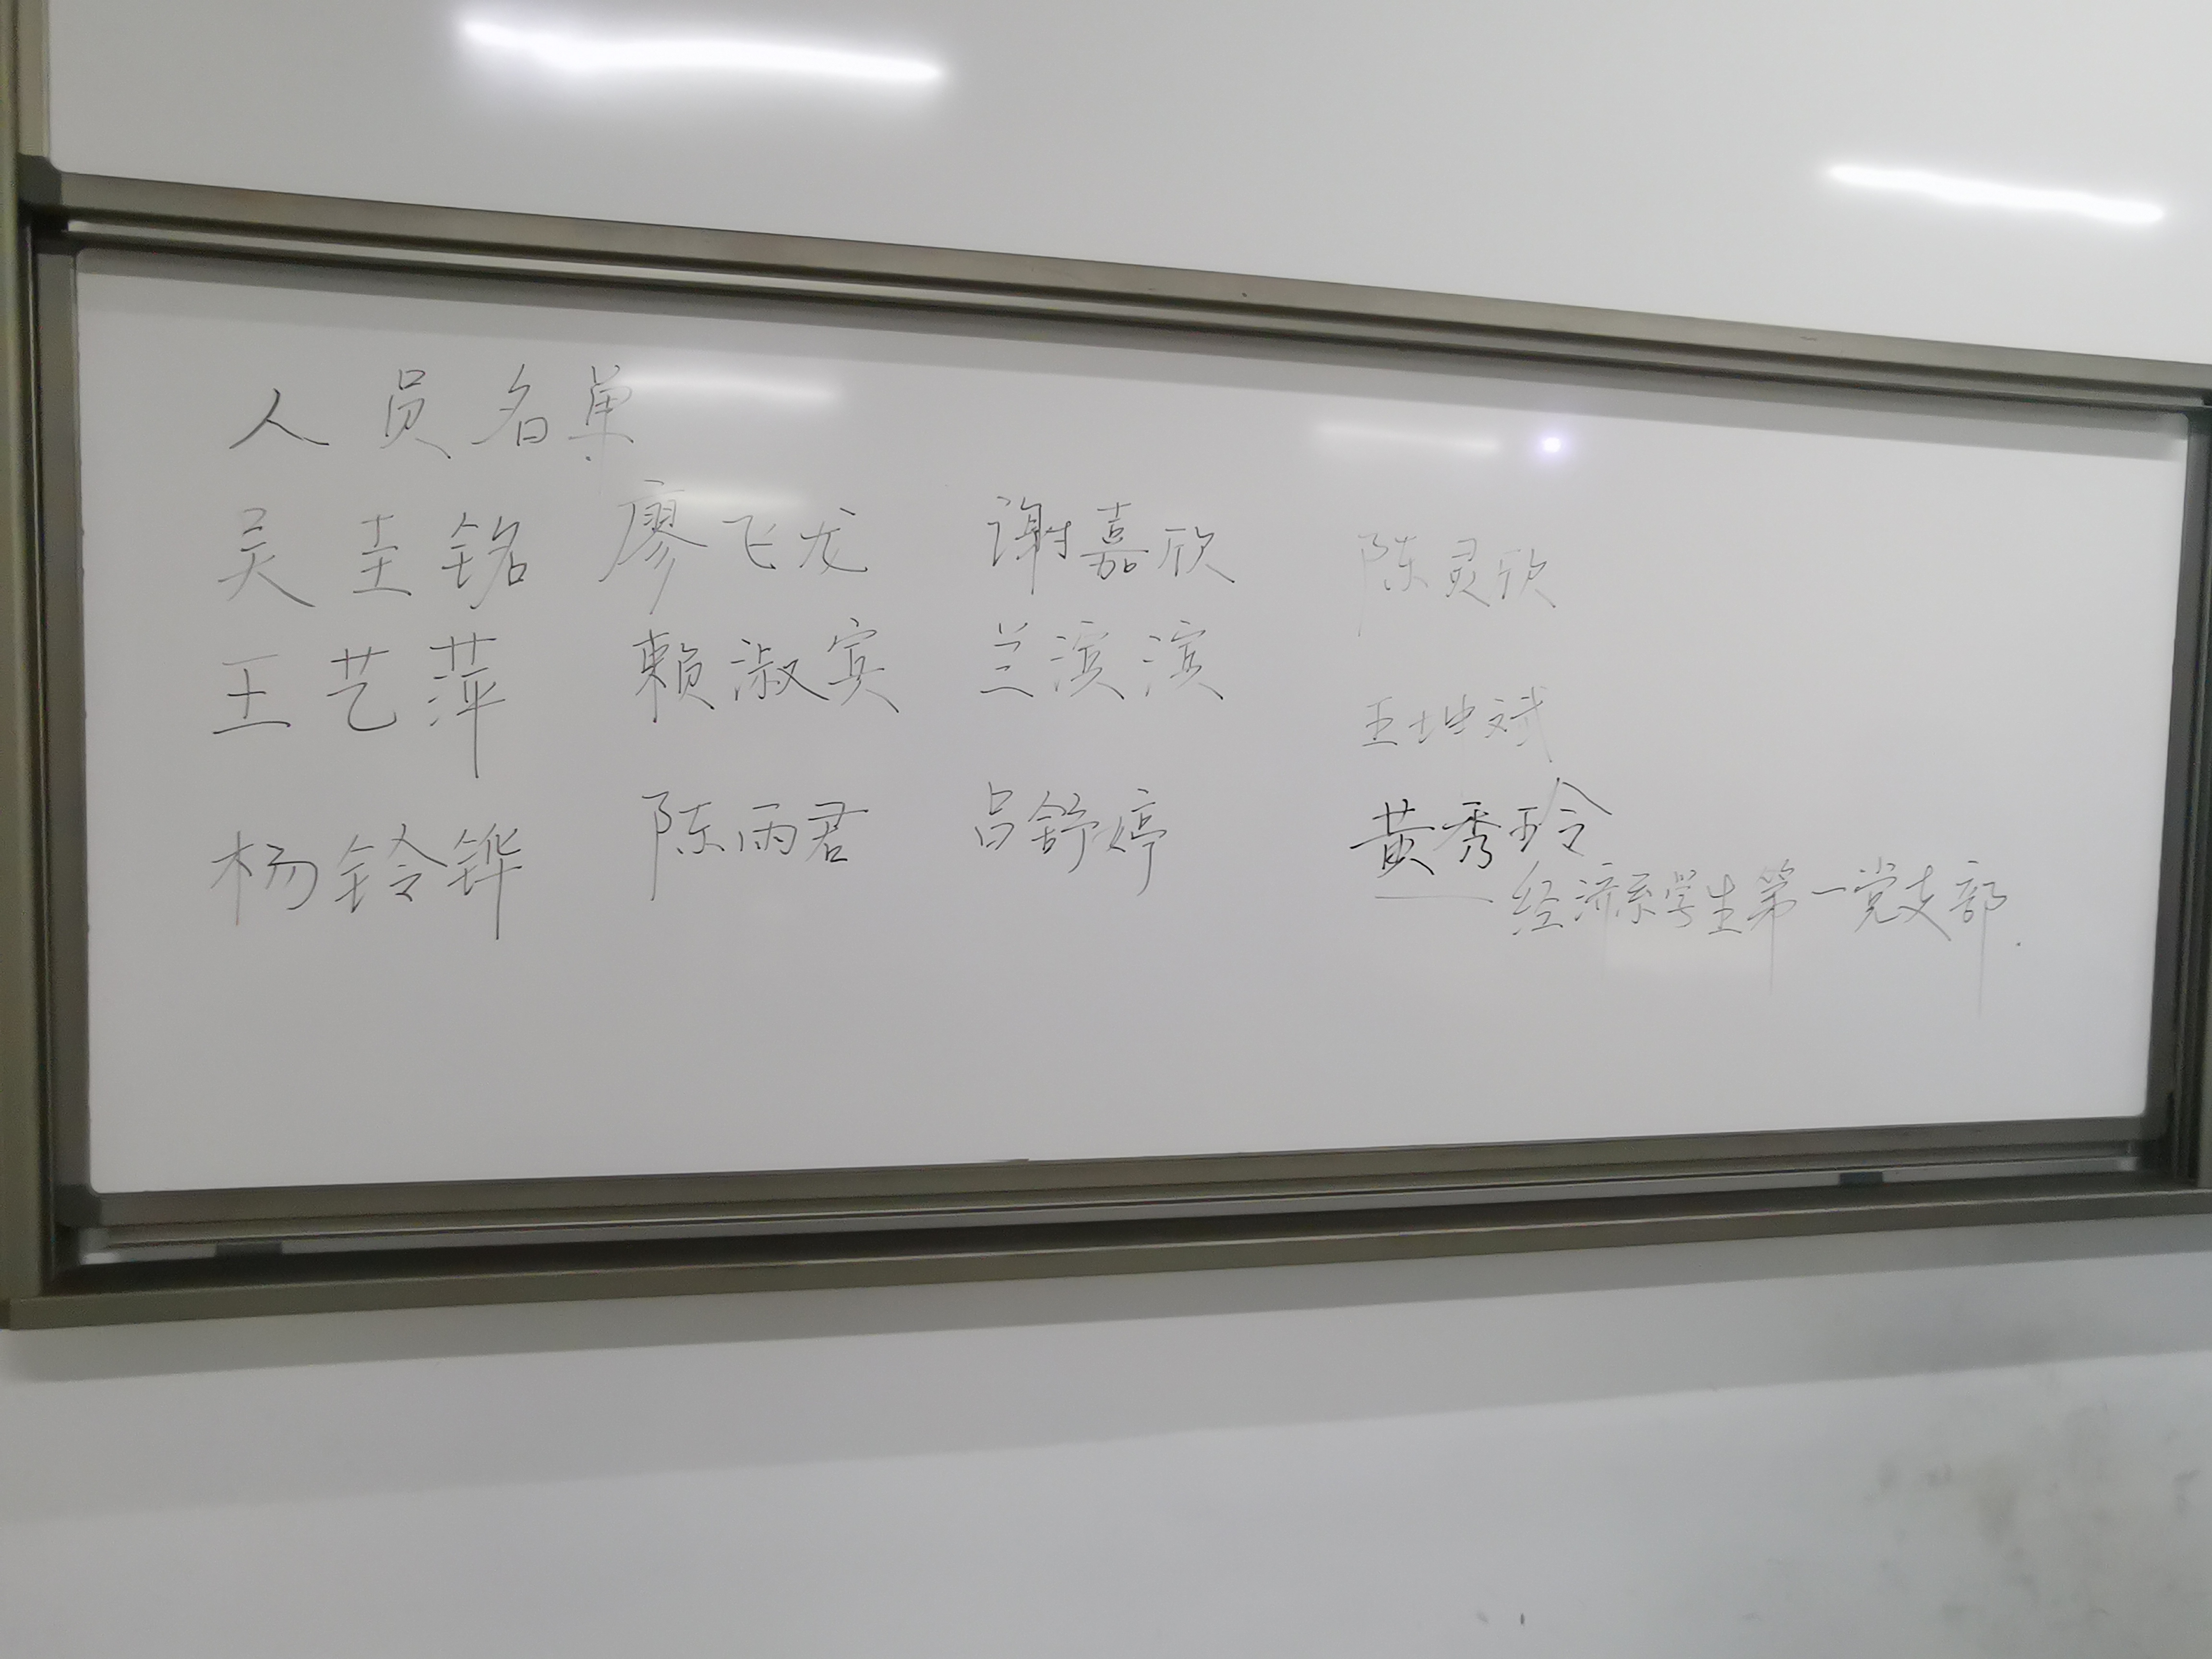 人员名单
吴圭铭 廖飞龙 谢嘉欣 陈灵欣
王艺萍 赖淑宾 兰滨滨 王坤斌
杨铃铧 陈雨君 吕舒婷 黄秀玲
——经济系学生第一党支部.